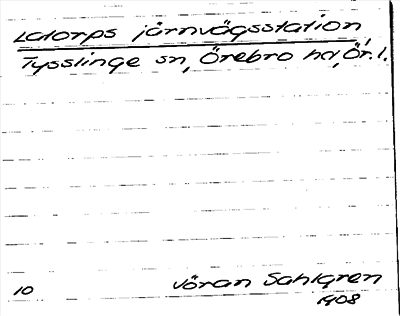 Latorps järnvägsstation,
Tysslinge sn, Örebro hd, Ör. l.
10 Jöran Sahlgren
1908